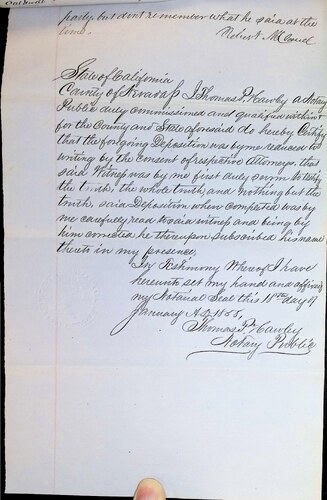 party but dont remember what he said at the
time.
Robert McConnel
State of California
County of Nevada ss I Thomas P. Hawley a Notary
Public duly commissioned and qualified within &
for the County and State aforesaid do hereby Certify
that the forgoing Deposition was by me reduced to
writing by the Consent of respective Attorneys, that
said Witness was by me first duly sworn to testify
the truth, the whole truth, and nothing but the
truth, said Deposition when completed was by
me carefully read to said witness and being by
him corrected he thereupon subscribed his name
thereto in my presence,
In Testimony Whereof I have
hereunto set my hand and affixed
my Notarial Seal this 11th day of
January A.D.
Thomas P. Hawley
Notary Public